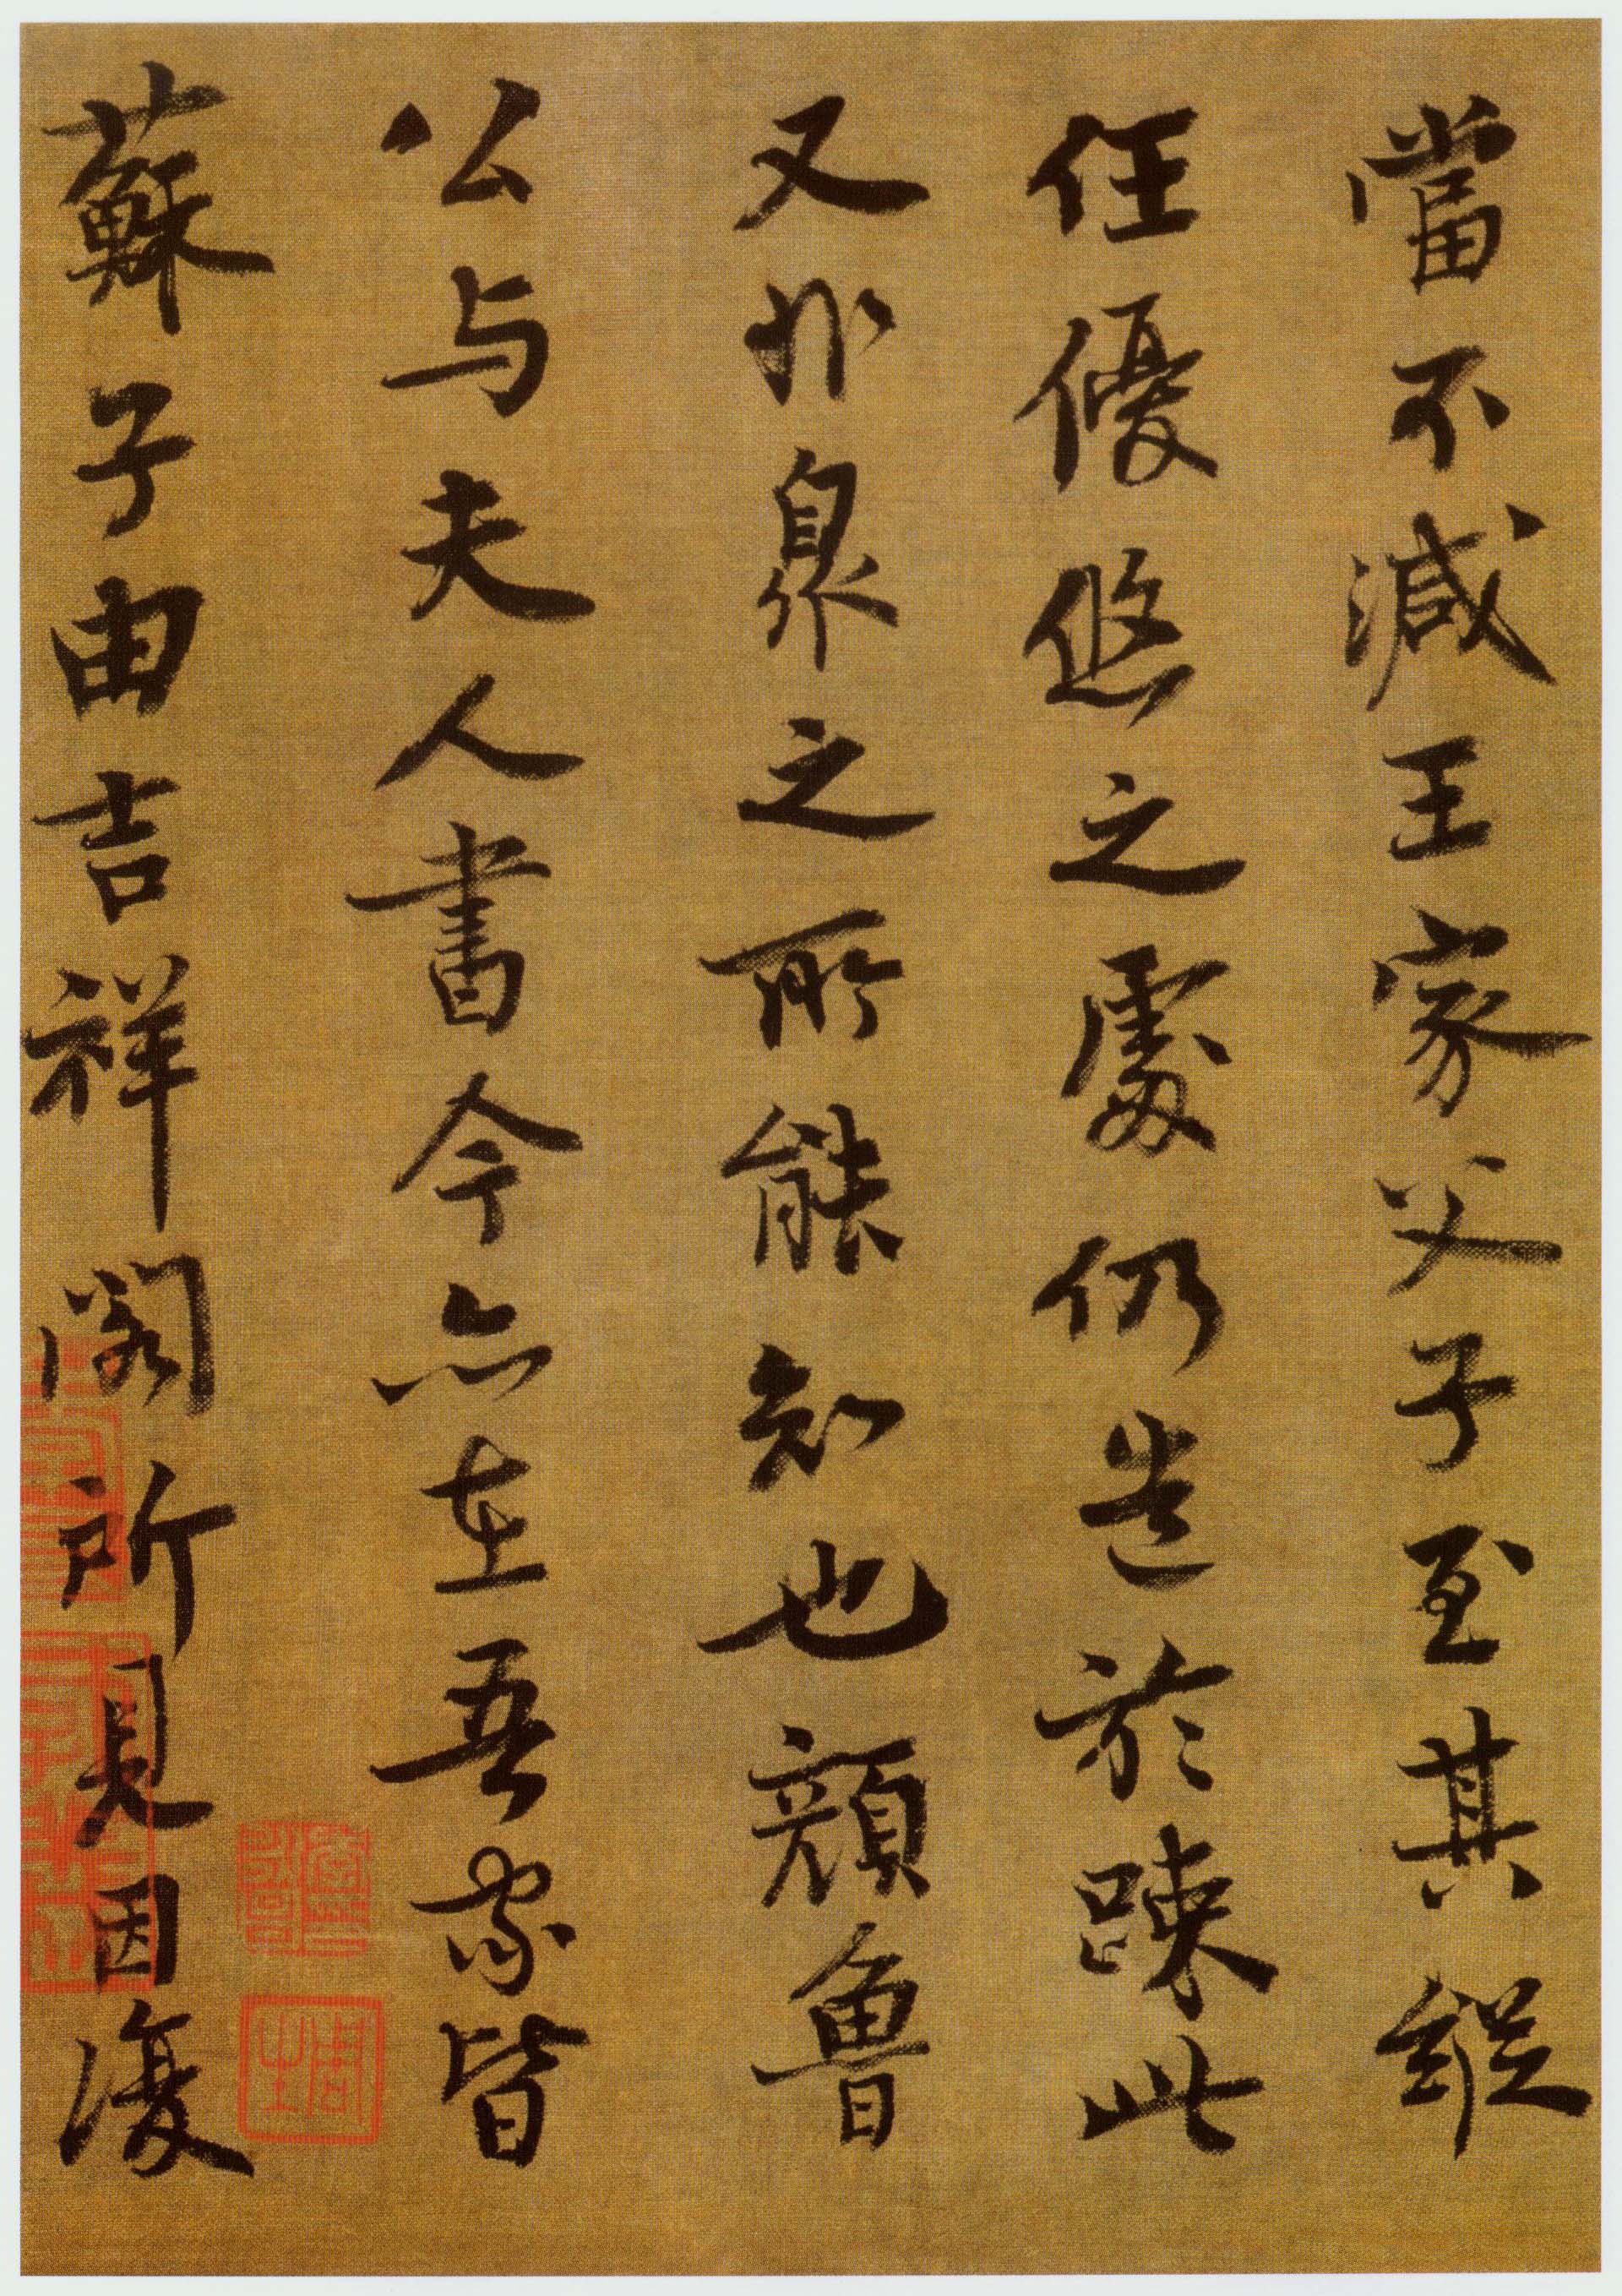 當不減王家父子至其縱
任優悠之處仍造於踈此
又非衆之所能知也顏魯
公与夫人書今亦在吾家皆
蘇子由吉祥閣所見因復